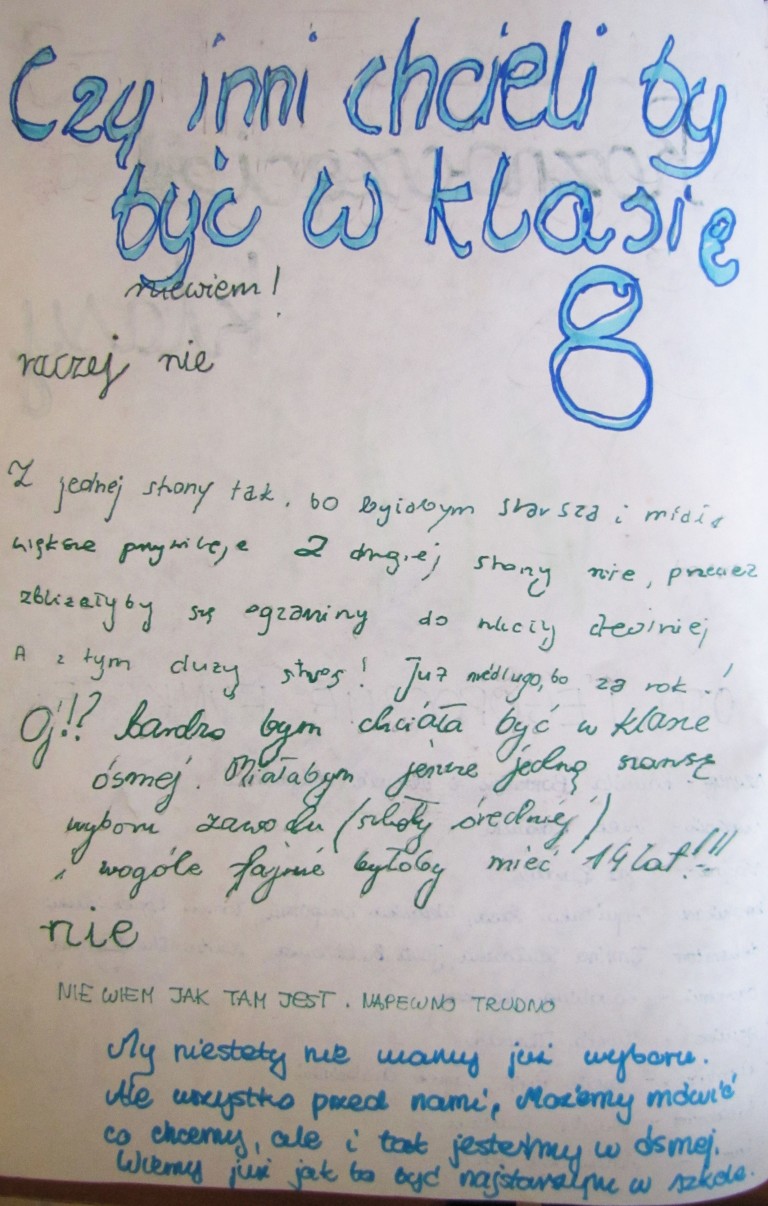 Czy inni chcieli by
być w klasie
8
niewiem!
raczej nie
Z jednej strony tak, bo byłabym starsza i miała
większe przywileje Z drugiej strony nie, przecież
zbliżałyby się egzaminy do szkoły
A z tym duży stres! Już niedługo, bo za rok!
Oj!!? bardzo bym chciała być w klasie
ósmej. Miałabym jeszcze jedną szansę
wyboru zawodu (szkoły średniej)
i wogóle fajnie byłoby mieć 14 lat!!!
nie
NIE WIEM JAK TAM JEST. NAPEWNO TRUDNO
My niestety nie mamy już wyboru.
Ale wszystko przed nami, Możemy mówić
co chcemy, ale i tak jesteśmy w ósmej.
Wiemy już jak to być najstarszym w szkole.